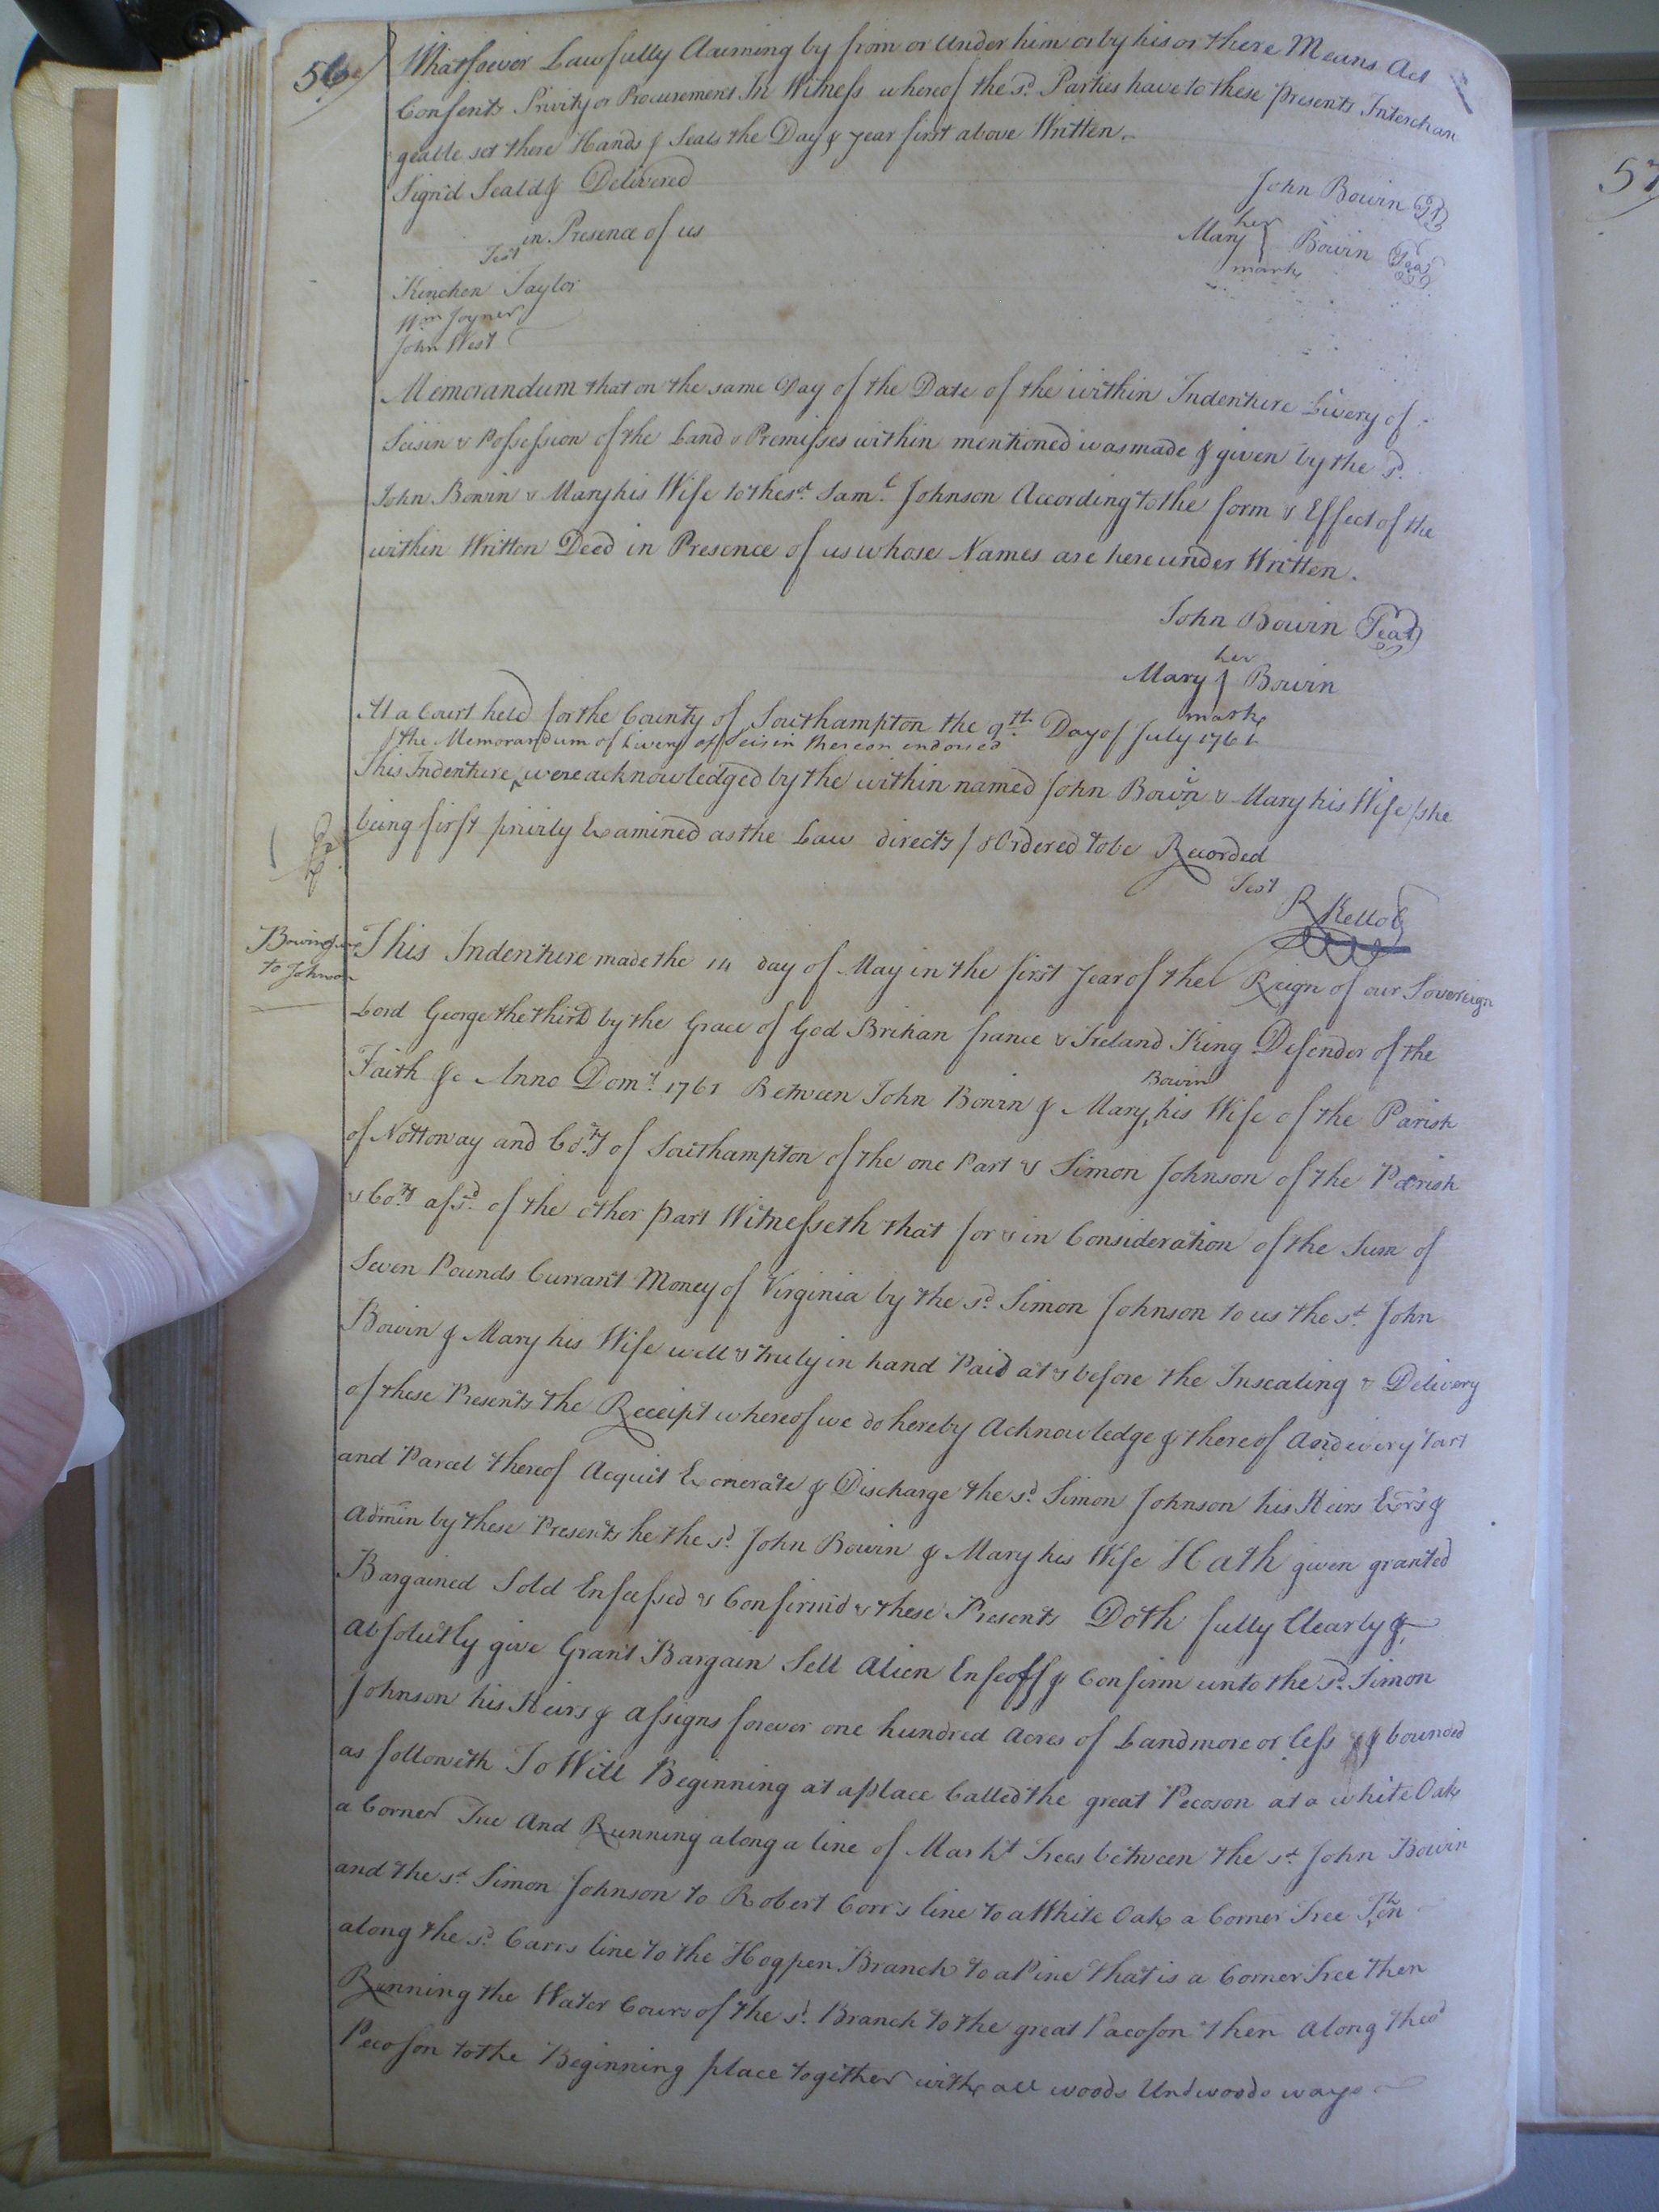 56
Whatsoever Lawfully Claiming by from or Under him or by his or there Means Act
Consents Privity or Procurement In Witness whereof the sd. Parties have to these Presents Interchan
geable set there Hands & Seals the Day & year first above Written.
Sign'd Seald & Delivered
in Presence of us
John Bowin
her
Mary Bowin Seal
mark
Test
Kinchen Taylor
Wm Joyner
John West
Memorandum that on the same Day of the Date of the within Indenture Livery of
Seisin & Possession of the Land & Premisses within mentioned was made & given by the sd.
John Bowin & Mary his Wife to the sd. Saml. Johnson According to the form & Effect of the
within Written Deed in Presence of us whose Names are hereunder Written.
John Bowin Seal
her
Mary Bowin
mark
At a Court held for the County of Southampton the 9th. Day of July 1761
& the Memorandum of Livery of Seisin thereon endorsed
This Indenture ^ were acknowledged by the within named John Bowin & Mary his Wife /she
being first privily Examined as the Law directs / & Ordered to be Recorded
Test
R Kello
Bowin
to Johnson
This Indenture made the 14 day of May in the first Year of the Reign of our Sovereign
Lord George the third by the Grace of God Britian france & Ireland King Defender of the
Faith &c Anno Domi. 1761 Between John Bowin & Mary ^ Bowin his Wife of the Parish
of Nottoway and Coty of Southampton of the one Part & Simon Johnson of the Parish
& Coty afsd. of the other part Witnesseth that for & in Consideration of the Sum of
Seven Pounds Currant Money of Virginia by the sd. Simon Johnson to us the sd. John
Bowin & Mary his Wife well & truly in hand Paid at & before the Insealing & Delivery
of these Presents the Receipt whereof we do hereby Acknowledge & thereof And every Part
and Parcel thereof Acquit Exonerate & Discharge the sd. Simon Johnson his Heirs Exors &
Admin by these Presents he the sd. John Bowin & Mary his Wife Hath given granted
Bargained Sold Enfeoffed & Confirmid & these Presents Doth fully Clearly &
absolutly give Grant Bargain Sell Alien Enfeoff & Confirm unto the sd. Simon
Johnson his Heirs & assigns forever one hundred Acres of Land more or less & bounded
as followeth To Witt Beginning at a place Called the great Pecoson at a white Oak
a Corner Tree And Running along a line of Markt Trees between the sd. John Bowin
and the sd. Simon Johnson to Robert Corr's line to a White Oak a Corner Tree Then
along the sd. Carrs line to the Hogpen Branch to a Pine that is a Corner Tree then
Running the Water Cours of the sd. Branch to the great Pacoson then Along the sd
Pecoson to the Beginning place together with all woods Undwoods ways
57